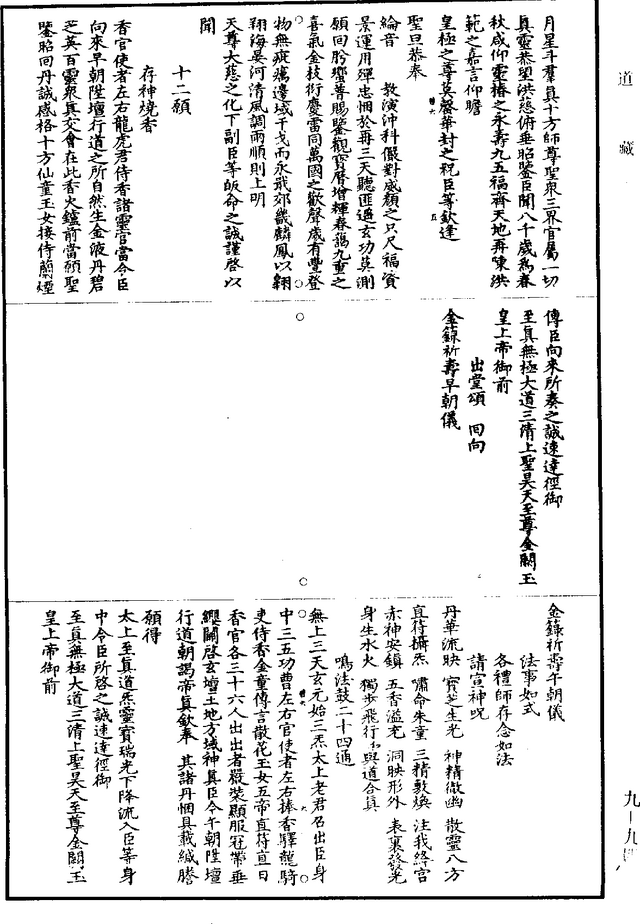 道藏
月星斗羣真十方師尊聖衆三界官屬一切
真靈恭望洪慈俯垂昭鑒臣聞八千歲爲春
秋咸仰靈椿之永壽九五福齊天地再陳洪
範之嘉言仰瞻
皇極之尊莫罄華封之祝臣等欽逢
聖旦恭奉
綸音 教演沖科儼對威顏之只尺福資
景運用殫忠悃於再三天聽匪遥玄功莫測
願回肹蠁普賜鑒觀寶曆增輝春藹九重之
喜氣金枝衍慶雷同萬國之歡聲歲有豐登
物無疵癘邊域干戈而永戢郊畿麟鳳以翱
翔海晏河清風調雨順則上明
天尊大慈之化下副臣等皈命之誠謹啓以
聞
十二願
存神燒香
香官使者左右龍虎君侍香諸靈官當令臣
向來早朝陞壇行道之所自然生金液丹碧
芝英百靈衆真交會在此香火鑪前當願聖
鑒昭回丹誠感格十方仙童玉女接侍蘭煙
傳臣向來所奏之誠速達徑御
至真無極大道三清上聖昊天至尊金闕玉
皇上帝御前
出堂頌 回向
金籙祈壽早朝儀
金籙祈壽午朝儀
法事如式
各禮師存念如法
請宣神呪
丹華流映 寶芝生光 神精微幽 散靈八方
直符攝炁 嘯命朱童 三精敷煥 注我絳宮
赤神安鎮 五香溢充 洞映形外 表裏發光
身生水火 獨步飛行 與道合真
鳴法鼓二十四通
無上三天玄元始三炁太上老君召出臣身
中三五功曹左右官使者左右捧香驛龍騎
吏侍香金童傳言散花玉女五帝直符直日
香官各三十六人出出者嚴裝顯服冠帶垂
纓關啓玄壇土地方域神真臣今午朝陞壇
行道朝謁帝真欽奉 其諸丹悃具載緘謄
願得
太上至真道炁靈寶瑞光下降流入臣等身
中令臣所啓之誠速達徑御
至真無極大道三清上聖昊天至尊金闕玉
皇上帝御前